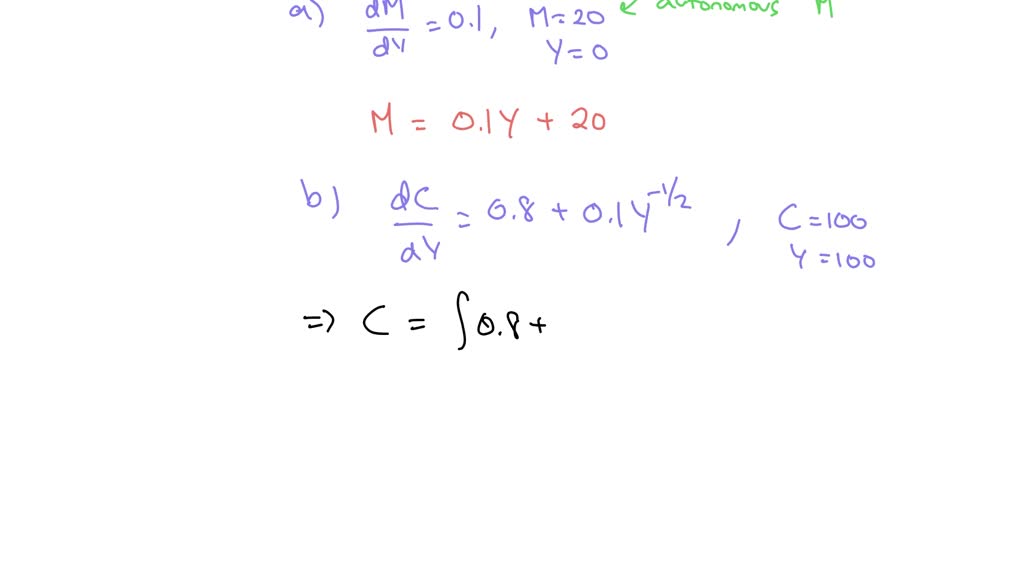 a) dM/dY = 0.1, M=20 ← autonomous M
Y=0
M = 0.1Y + 20
b) dC/dY = 0.8 + 0.1Y^{-1/2} , C=100
Y=100
⇒ C = ∫0.8+